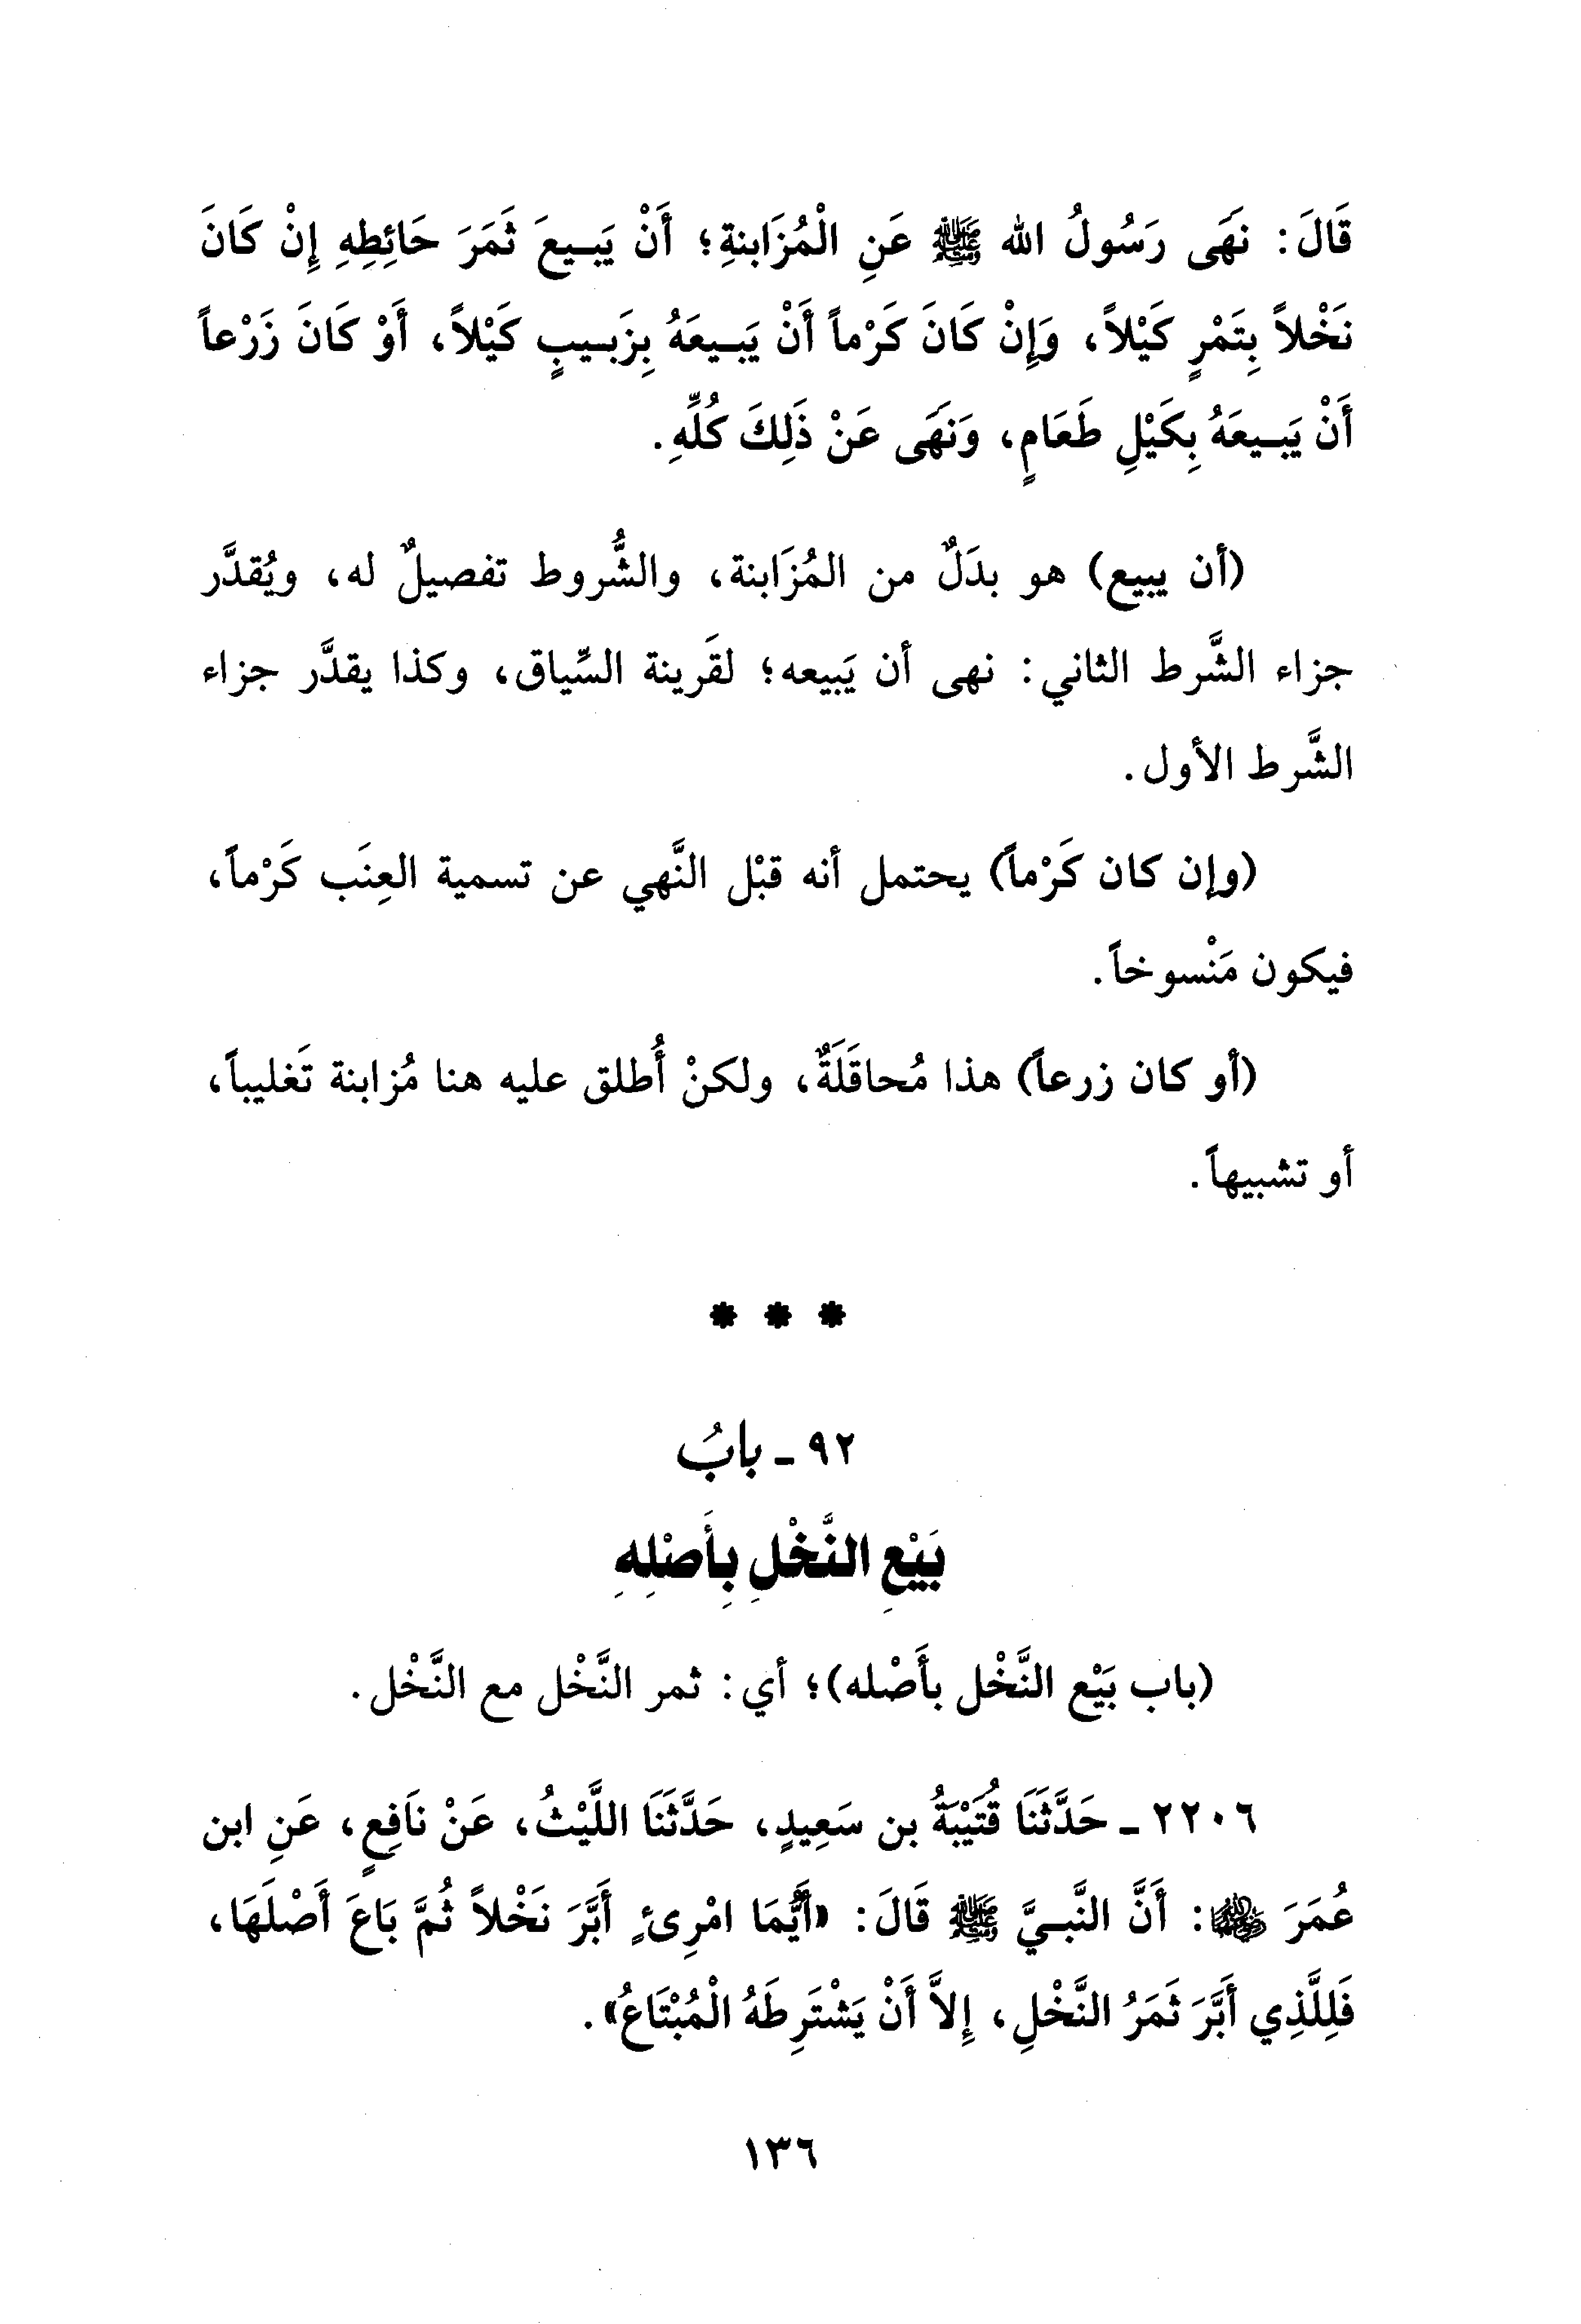 قَالَ: نهَى رَسُولُ الله ﷺ عَنِ الْمُزَابنةِ؛ أَنْ يَبيعَ ثَمَرَ حَائِطِهِ إِنْ كَانَ
نَخْلاً بِتَمْرٍ كَيْلاً، وَإِنْ كَانَ كَرْماً أَنْ يَبيعَهُ بِزَبيبٍ كَيْلاً، أَوْ كَانَ زَرْعاً
أَنْ يَبيعَهُ بِكَيْلِ طَعَامٍ، وَنهَى عَنْ ذَلِكَ كُلِّهِ.
(أن يبيع) هو بدَلٌ من المُزَابنة، والشُّروط تفصيلٌ له، ويُقدَّر
جزاء الشَّرط الثاني: نهى أن يَبيعه؛ لقَرينة السِّياق، وكذا يقدَّر جزاء
الشَّرط الأول.
(وإن كان كَرْماً) يحتمل أنه قبْل النَّهي عن تسمية العِنَب كَرْماً،
فيكون مَنْسوخاً.
(أو كان زرعاً) هذا مُحاقَلَةٌ، ولكنْ أُطلق عليه هنا مُزابنة تَغليباً،
أو تشبيهاً.
* * *
٩٢ - بابُ
بَيْعِ النَّخْلِ بِأَصْلِهِ
(باب بَيْع النَّخْل بأَصْله)؛ أي: ثمر النَّخْل مع النَّخْل.
٢٢٠٦ - حَدَّثَنَا قُتَيْبَةُ بن سَعِيدٍ، حَدَّثَنَا اللَّيْثُ، عَنْ نَافِعٍ، عَنِ ابن
عُمَرَ ﵄: أَنَّ النَّبيَّ ﷺ قَالَ: «أَيُّمَا امْرِئٍ أَبَّرَ نَخْلاً ثُمَّ بَاعَ أَصْلَهَا،
فَلِلَّذِي أَبَّرَ ثَمَرُ النَّخْلِ، إِلاَّ أَنْ يَشْتَرِطَهُ الْمُبْتَاعُ».
١٣٦